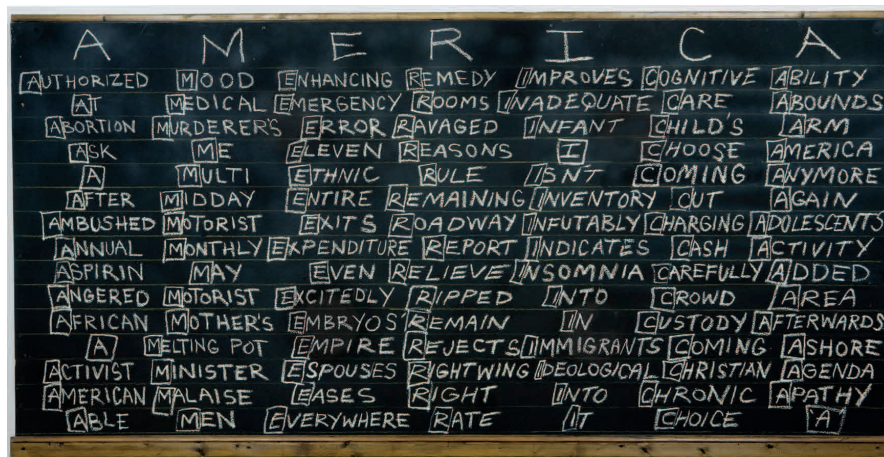 A M E R I C A
AUTHORIZED MOOD ENHANCING REMEDY IMPROVES COGNITIVE ABILITY
AT MEDICAL EMERGENCY ROOMS INADEQUATE CARE ABOUNDS
ABORTION MURDERER'S ERROR RAVAGED INFANT CHILD'S ARM
ASK ME ELEVEN REASONS I CHOOSE AMERICA
A MULTI ETHNIC RULE ISN'T COMING ANYMORE
AFTER MIDDAY ENTIRE REMAINING INVENTORY CUT AGAIN
AMBUSHED MOTORIST EXITS ROADWAY INFUTABLY CHARGING ADOLESCENTS
ANNUAL MONTHLY EXPENDITURE REPORT INDICATES CASH ACTIVITY
ASPIRIN MAY EVEN RELIEVE INSOMNIA CAREFULLY ADDED
ANGERED MOTORIST EXCITEDLY RIPPED INTO CROWD AREA
AFRICAN MOTHER'S EMBRYOS' REMAIN IN CUSTODY AFTERWARDS
A MELTING POT EMPIRE REJECTS IMMIGRANTS COMING ASHORE
ACTIVIST MINISTER ESPOUSES RIGHTWING IDEOLOGICAL CHRISTIAN AGENDA
AMERICAN MALAISE EASES RIGHT INTO CHRONIC APATHY
ABLE MEN EVERYWHERE RATE IT CHOICE A